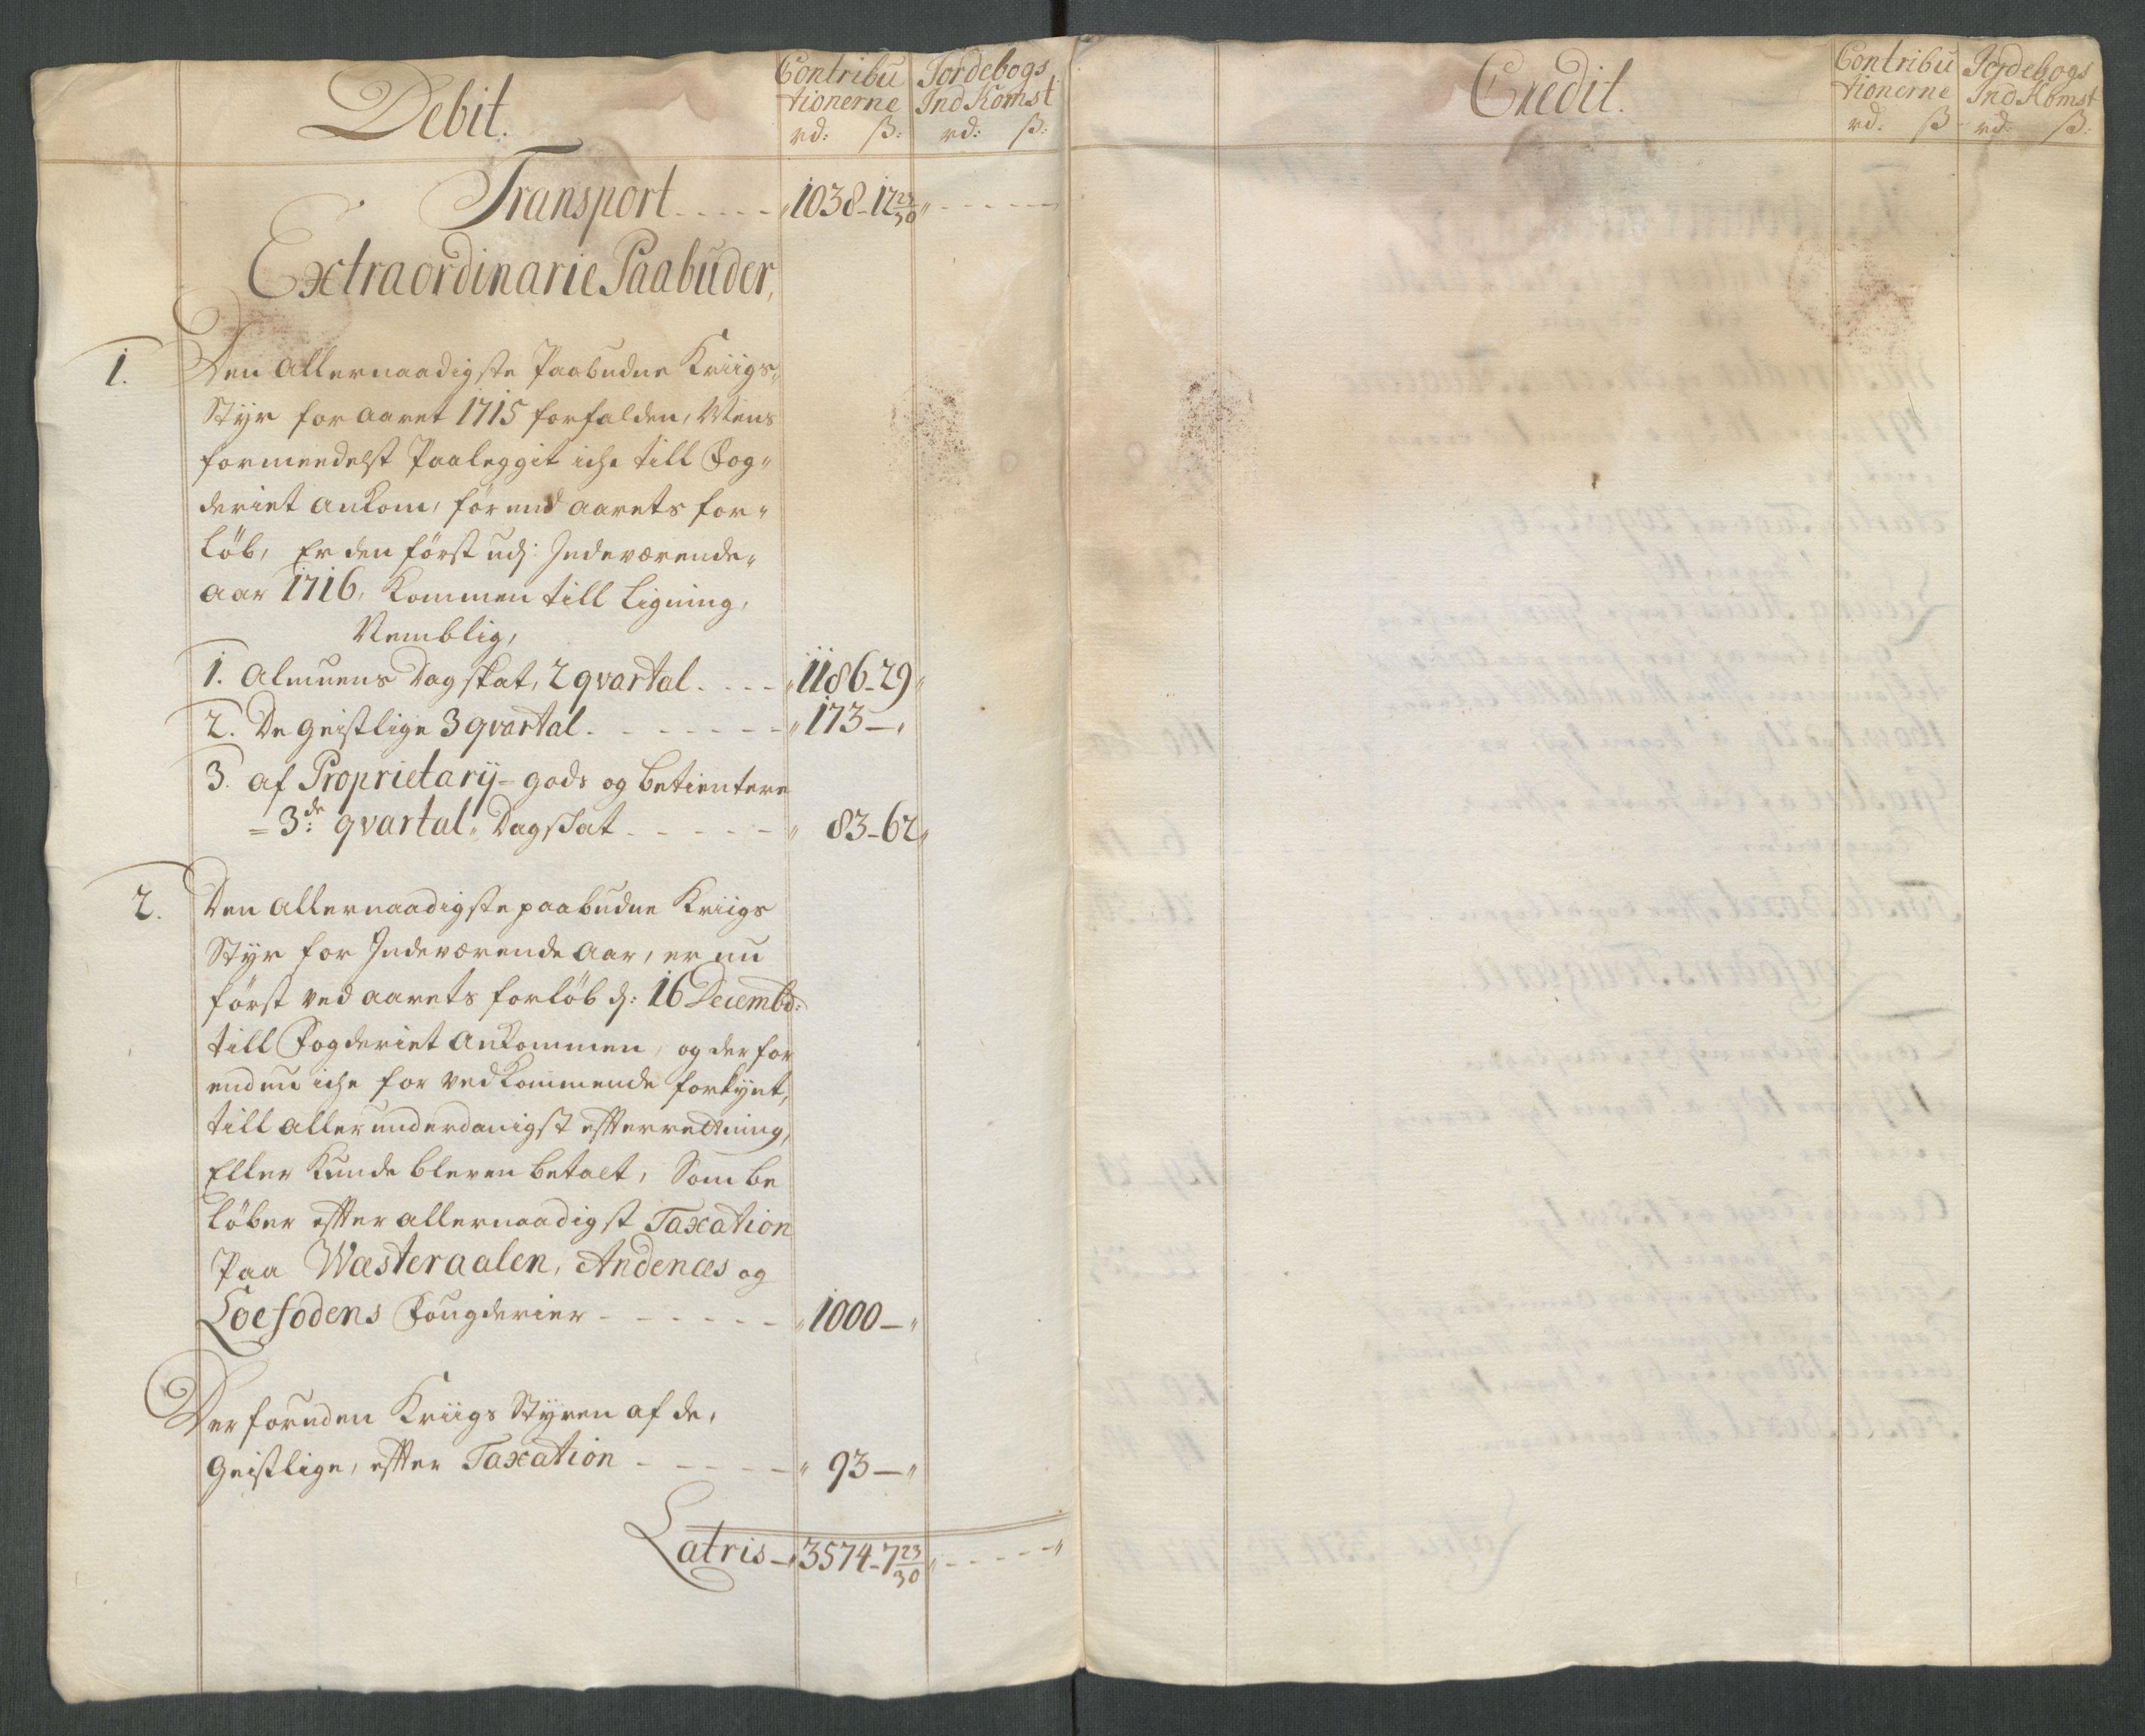 Debit.
Contribu Jordebogs
tionerne IndKomst
rd: ß: rd: ß:
Transport - - - - - 1038-12 23/30 - - - - -
Extraordinarie Paabuder,
1. Den allernaadigste Paabudne Kriigs-
Styr for aaret 1715 forfalden, Mens
formeedelst Paaleggit iche till Fog-
deriet ankom, för end aarets for-
löb, Er den först udj: Indeværende-
aar 1716, Kommen till Ligning,
Nemblig,
1. Almuens Dagskat, 2 qvartal - - - - 1186-29
2. De geistlige 3 qvartal - - - - - - - 173—
3. af Proprietarij-gods og betientere
= 3de: qvartal Dagskat - - - - - 83-62
2. Den allernaadigste paabudne Kriigs
Styr for Indeværende aar, er nu
först ved aarets forlöb d: 16 Decembr:
till Fogderiet ankommen, og derfor
endnu iche for vedkommende forkynt,
till allerunderdanigst efterretning,
Eller kunde bleven betalt, Som be
löber efter allernaadigst Taxation
Paa Wæsteraalen, Andenæs og
Loefodens Fougderier - - - - - - 1000—
Der foruden Kriigs Styren af de,
Geistlige, efter Taxation - - - - - 93—
Latris - 3574-7 23/30 - - - - -
Credit.
Contribu Jordebogs
tionerne IndKomst
rd: ß rd: ß: